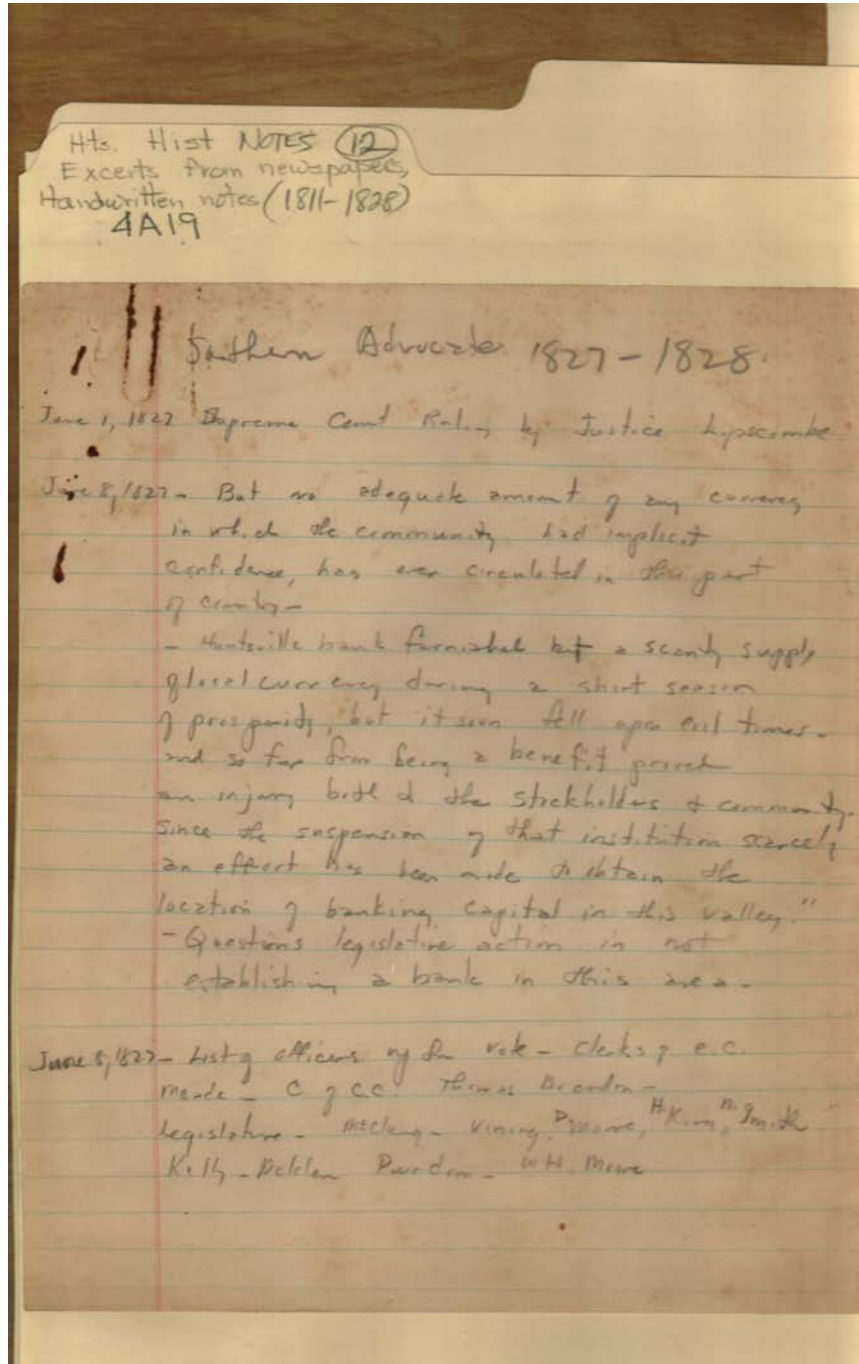 Hts. Hist NOTES (12)
Excerts from newspapers,
Handwritten notes (1811-1828)
4A19
Southern Advocate 1827-1828.
June 1, 1827 Supreme Court Ruling by Justice Lipscombe
June 8, 1827 - But no adequate amount of any currency
in which the community had implicit
confidence, has ever circulated in this part
of country -
- Huntsville bank furnished but a scanty supply
of local currency during a short season
of prosperity, but it soon fell upon evil times -
and so far from being a benefit proved
an injury both to the stockholders & community.
Since the suspension of that institution scarcely
an effort has been made to obtain the
location of banking capital in this valley."
- Questions legislative action in not
establishing a bank in this area -
June 8, 1827 - List of officers up for vote - clerks of C.C.
Meade - C of C.C. Thomas Brandon -
Legislature - McClung - Vining, D Moore, H. King, Smith
Kelly - Purdom - W H. Moore